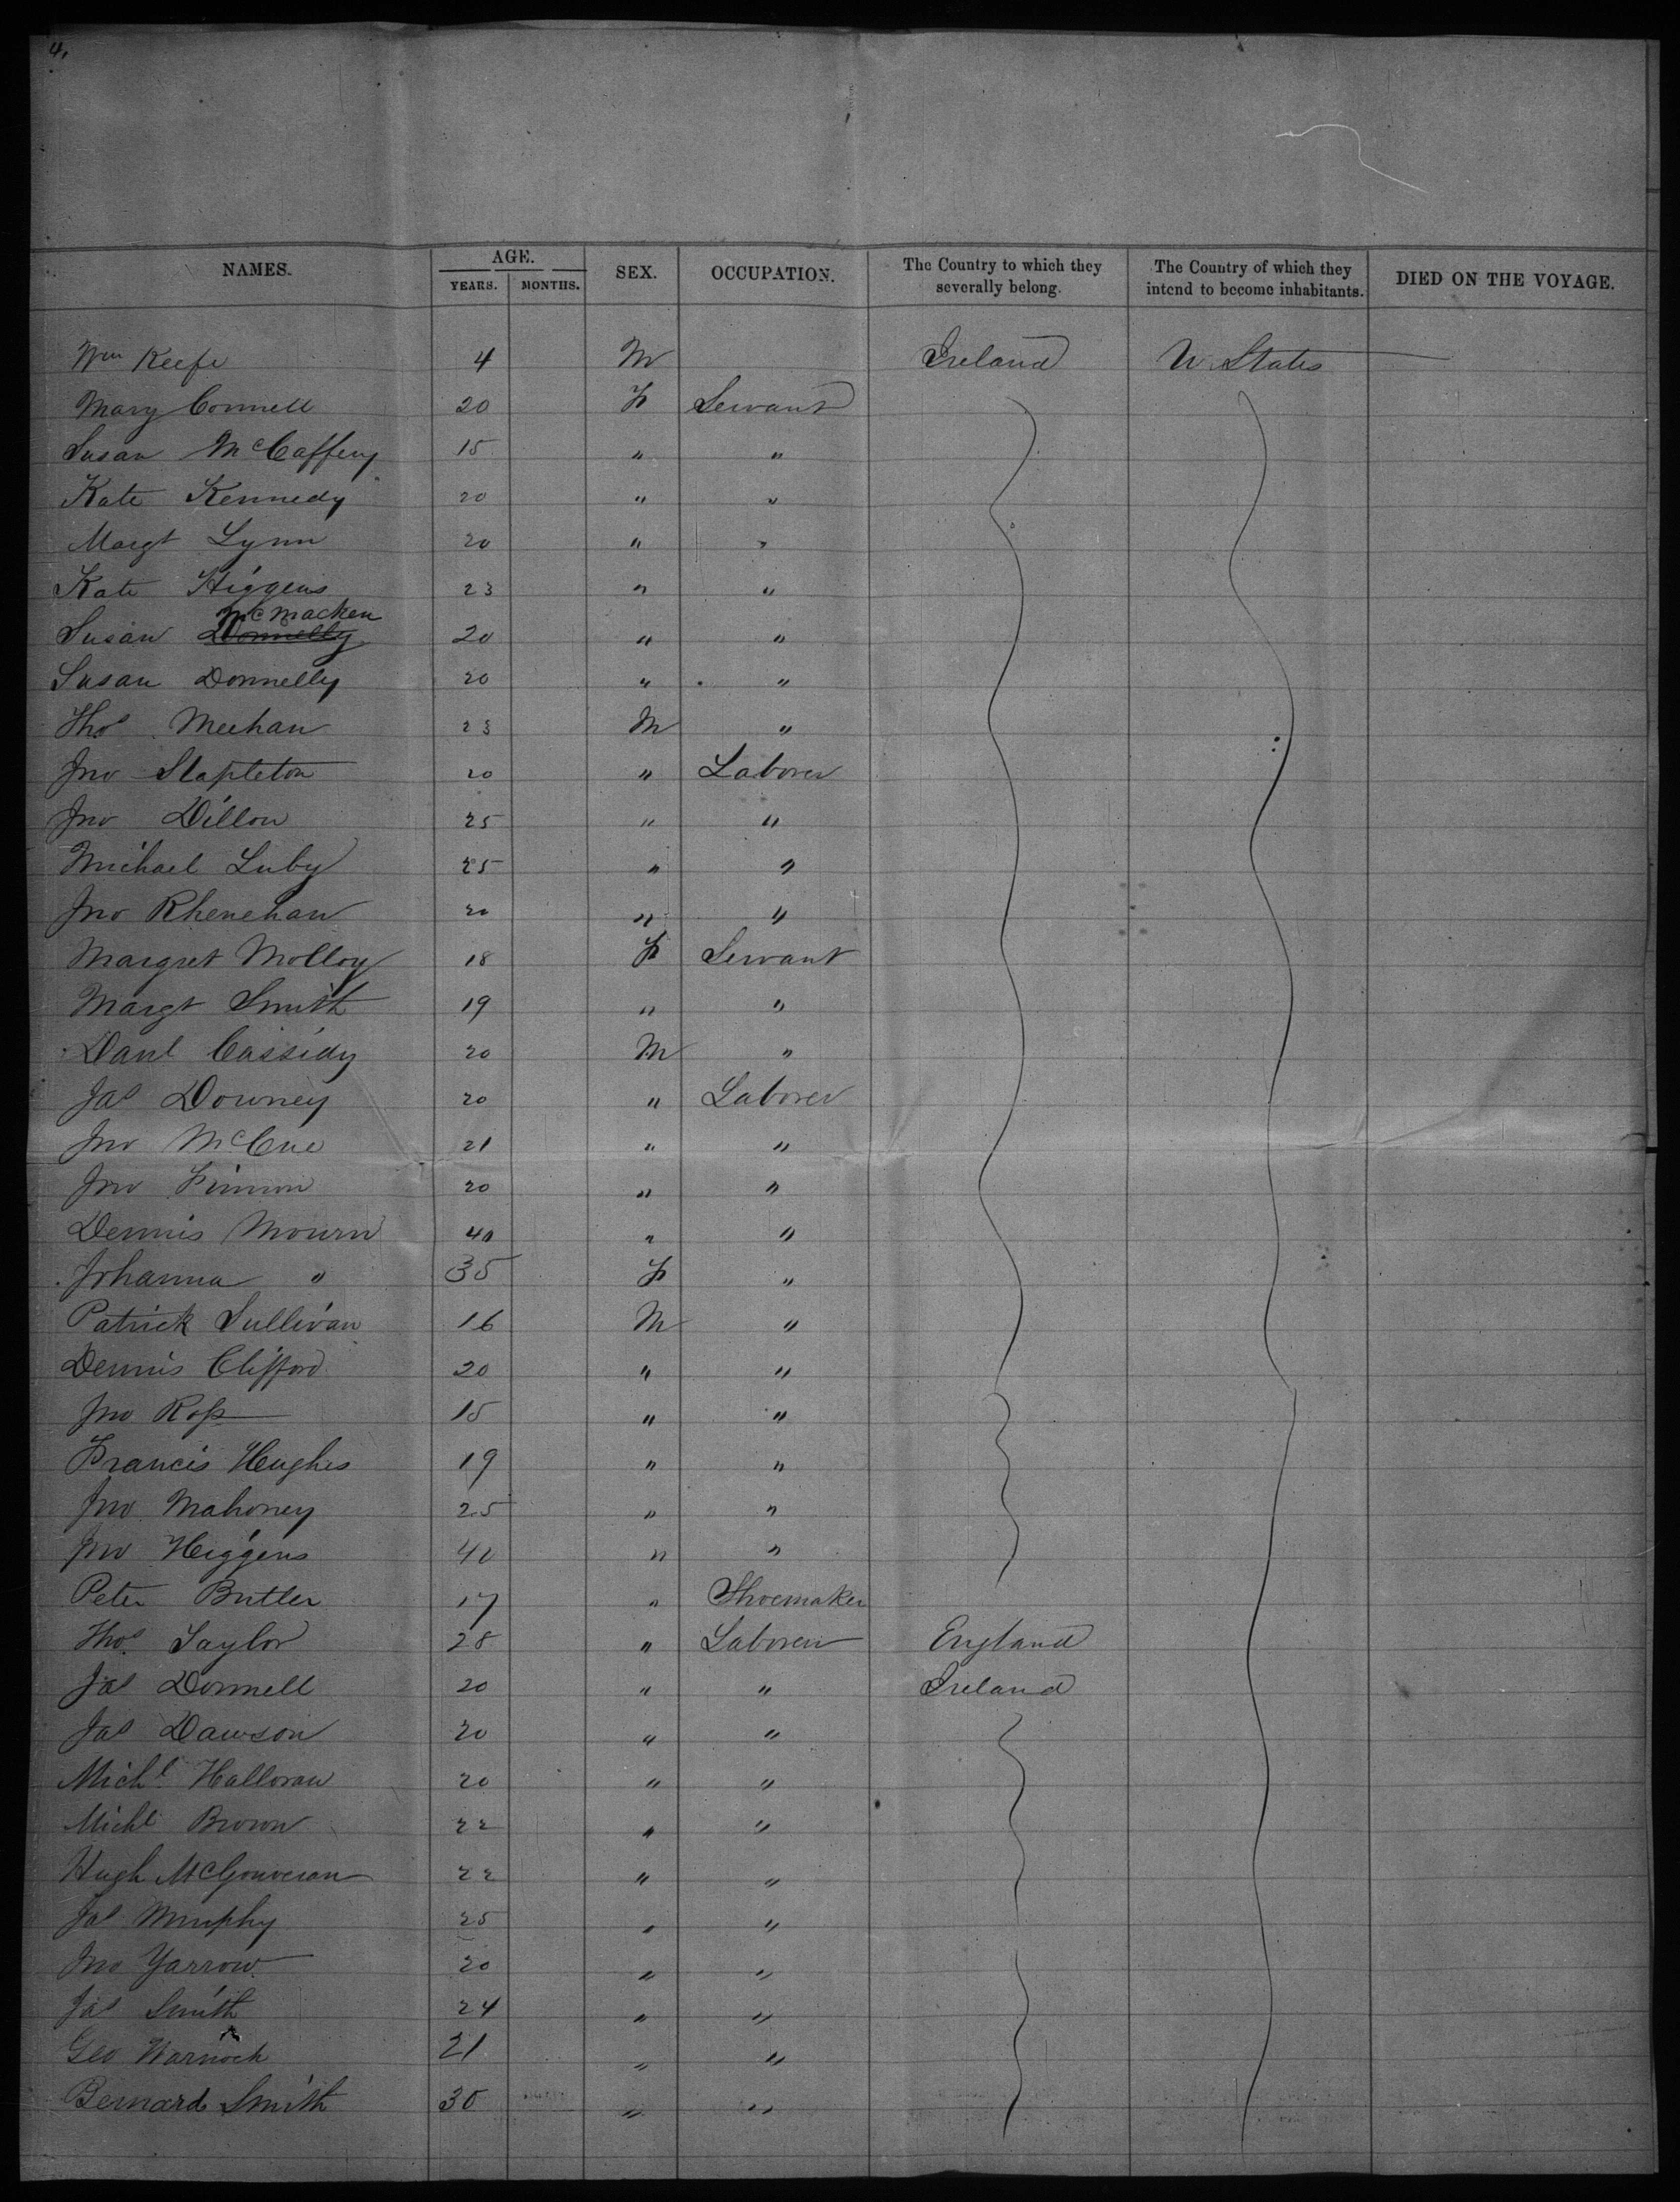 4.
NAMES. AGE. SEX. OCCUPATION. The Country to which they severally belong. The Country of which they intend to become inhabitants. DIED ON THE VOYAGE.
YEARS. MONTHS.
Wm Keefe 4 M Ireland U. States
Mary Connell 20 F Servant
Susan McCaffery 15 " "
Kate Kennedy 20 " "
Margt Lynn 20 " "
Kate Higgens 23 " "
McMacken
Susan Donnelly 20 " "
Susan Donnelly 20 " "
Thos Meehan 23 M "
Jno Stapleton 20 " Laborer
Jno Dillon 25 " "
Michael Luby 25 " "
Jno Rhenehan 20 " "
Margret Molloy 18 F Servant
Margt Smith 19 " "
Danl Cassidy 20 M "
Jas Downey 20 " Laborer
Jno McCue 21 " "
Jno Finnon 20 " "
Dennis Mourn 40 " "
Johanna " 35 F "
Patrick Sullivan 16 M "
Dennis Clifford 20 " "
Jno Ross 15 " "
Francis Hughes 19 " "
Jno Mahoney 25 " "
Jno Higgens 40 " "
Peter Butler 17 " Shoemaker
Thos Taylor 28 " Laborer England
Jas Donnell 20 " " Ireland
Jas Dawson 20 " "
Michl Halloran 20 " "
Michl Brown 22 " "
Hugh McGouveran 22 " "
Jas Murphy 25 " "
Jno Yarrow 20 " "
Jas Smith 24 " "
Geo Warnock 21 " "
Bernard Smith 30 " "